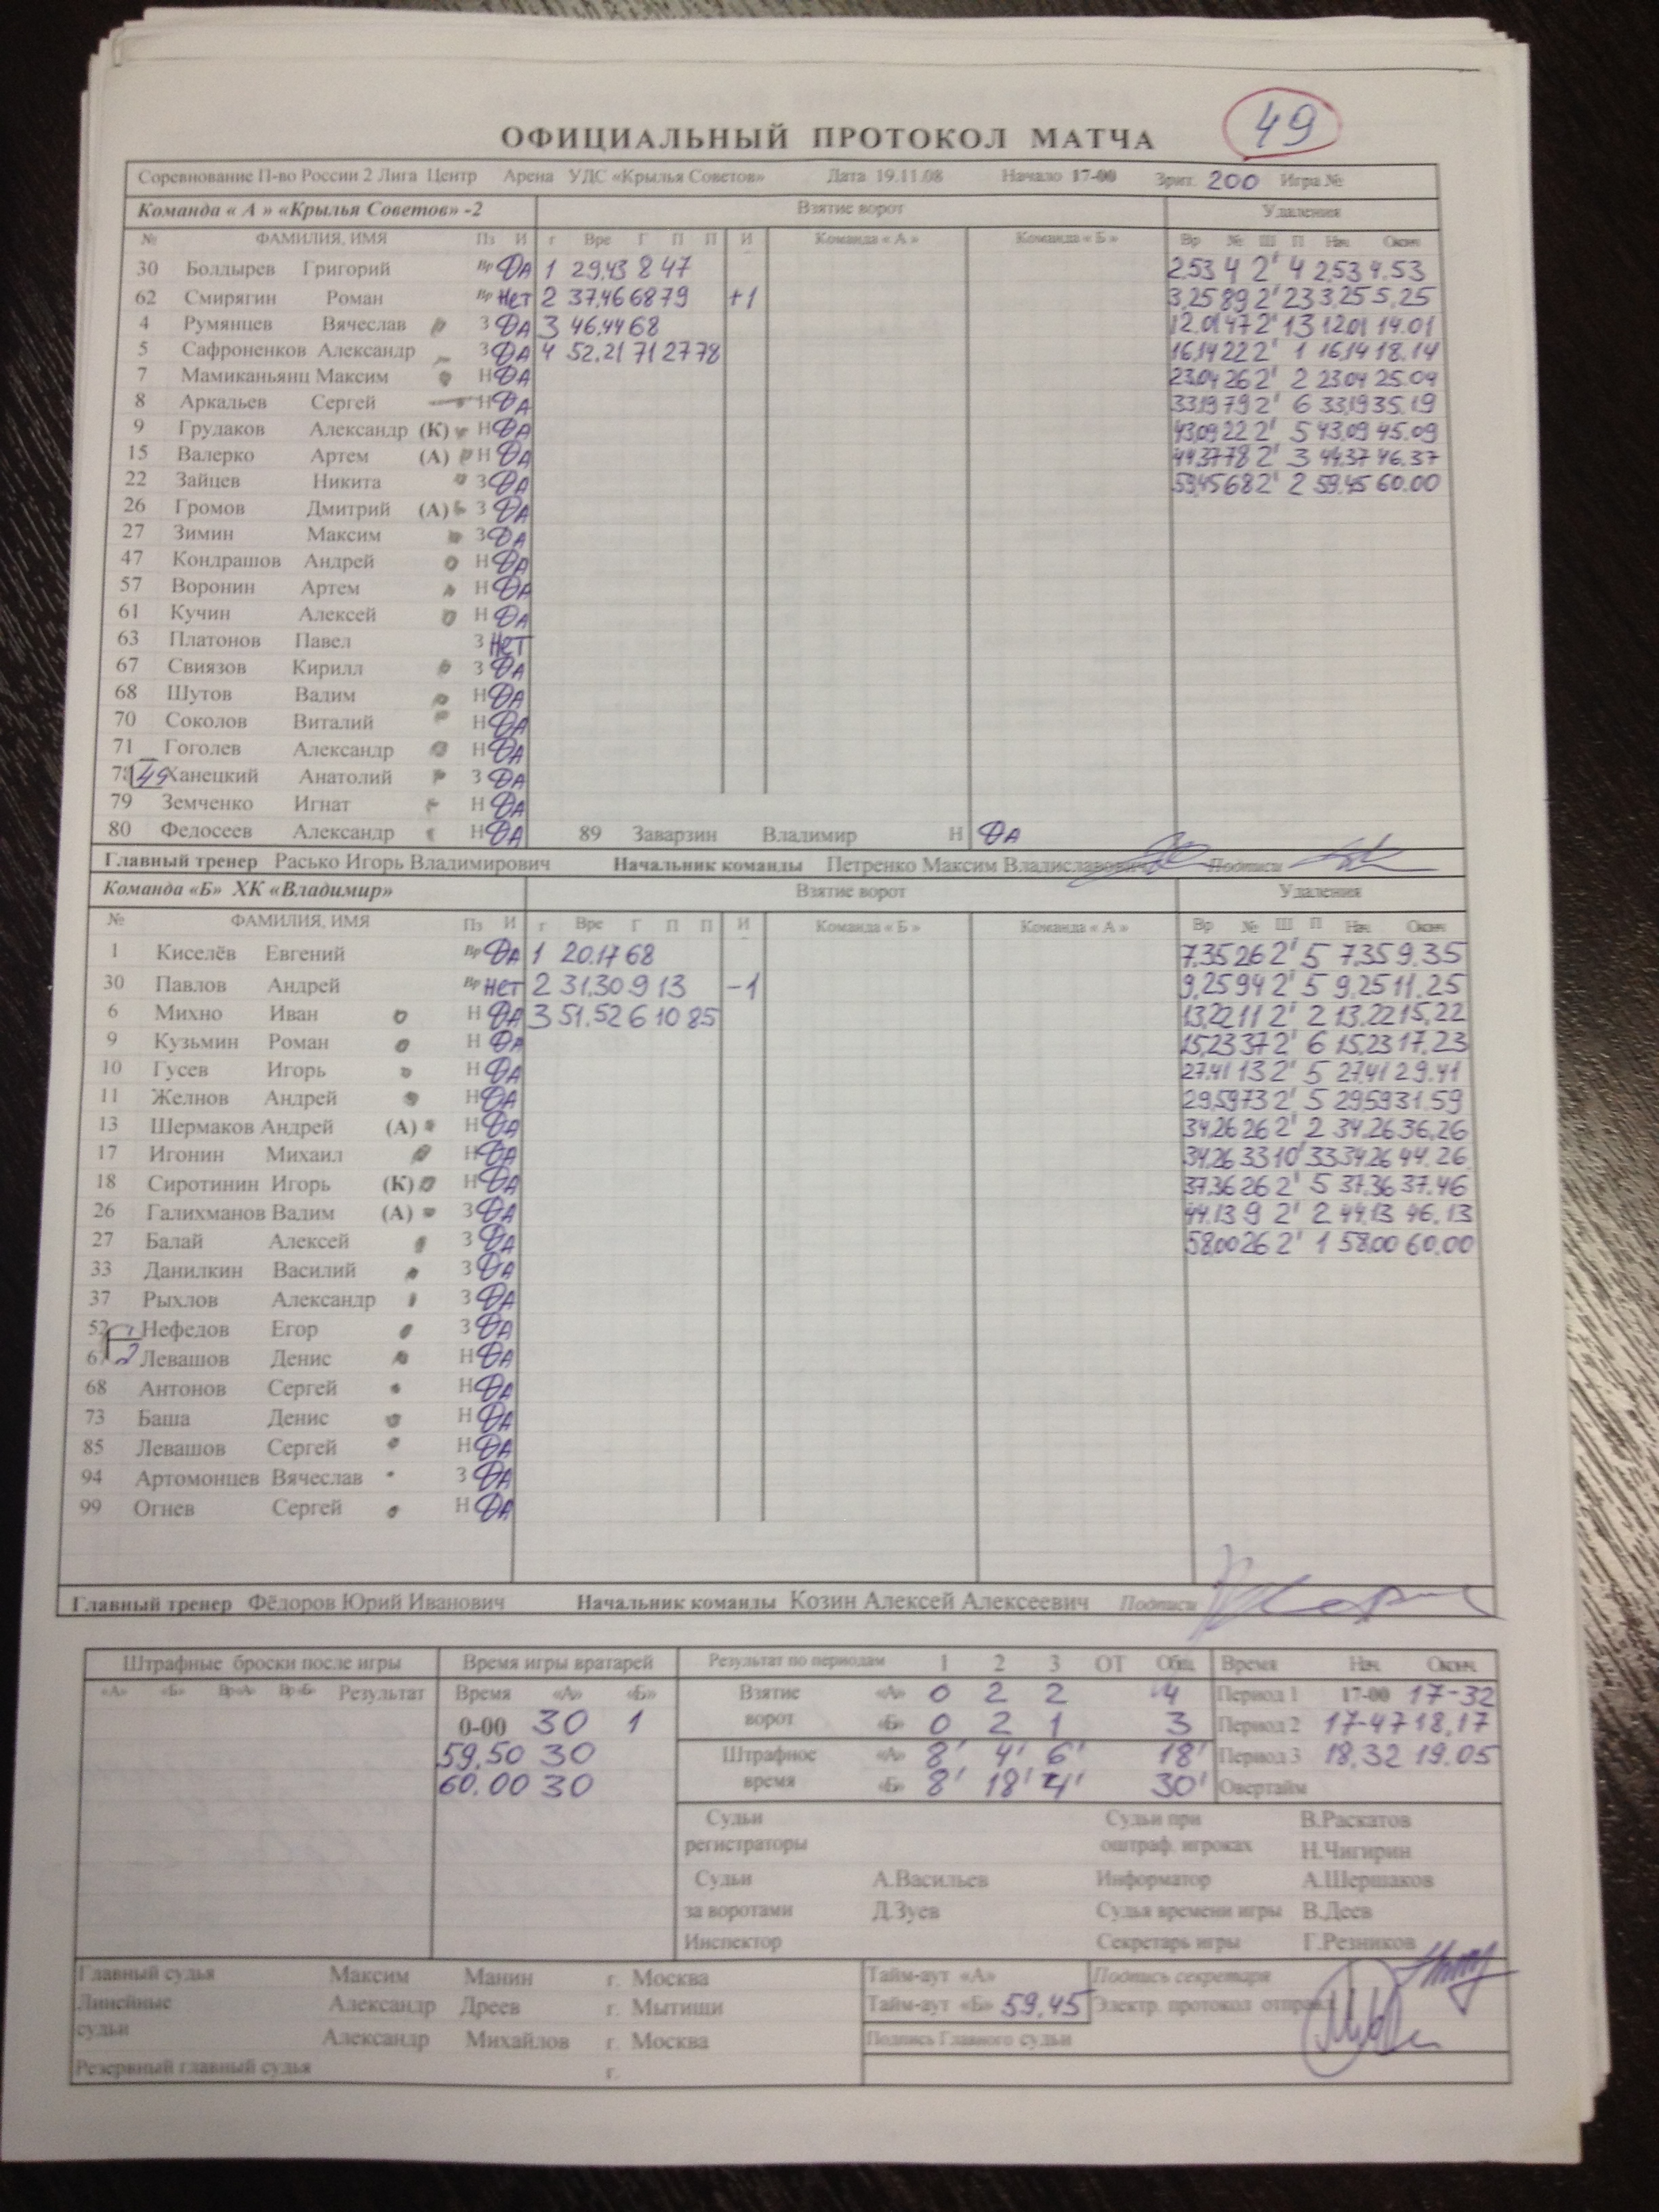 49
ОФИЦИАЛЬНЫЙ ПРОТОКОЛ МАТЧА
Соревнование П-во России 2 Лига Центр Арена УДС «Крылья Советов» Дата 19.11.08 Начало 17-00 Зрит. 200 Игра №
Команда « А » «Крылья Советов» -2 Взятие ворот Удаления
№ ФАМИЛИЯ, ИМЯ Пз И г Вре Г П П И Команда « А » Команда « Б » Вр № Ш П Нач Оконч
30 Болдырев Григорий Вр ДА 1 29,43 8 47 2.53 4 2' 4 2.53 4.53
62 Смирягин Роман Вр Нет 2 37,46 68 79 +1 3,25 89 2' 23 3,25 5,25
4 Румянцев Вячеслав З ДА 3 46.44 68 12.01 47 2' 13 12.01 14.01
5 Сафроненков Александр З ДА 4 52.21 71 27 78 16,14 22 2' 1 16,14 18.14
7 Мамиканьянц Максим Н ДА 23.04 26 2' 2 23.04 25.04
8 Аркальев Сергей Н ДА 33,19 79 2' 6 33,19 35.19
9 Грудаков Александр (К) Н ДА 43,09 22 2' 5 43,09 45.09
15 Валерко Артем (А) Н ДА 44.37 78 2' 3 44.37 46.37
22 Зайцев Никита З ДА 59.45 68 2' 2 59.45 60.00
26 Громов Дмитрий (А) З ДА
27 Зимин Максим З ДА
47 Кондрашов Андрей Н ДА
57 Воронин Артем Н ДА
61 Кучин Алексей Н ДА
63 Платонов Павел З Нет
67 Свиязов Кирилл З ДА
68 Шутов Вадим Н ДА
70 Соколов Виталий Н ДА
71 Гоголев Александр Н ДА
78 49 Ханецкий Анатолий З ДА
79 Земченко Игнат Н ДА
80 Федосеев Александр Н ДА 89 Заварзин Владимир Н ДА
Главный тренер Расько Игорь Владимирович Начальник команды Петренко Максим Владиславович Подписи
Команда «Б» ХК «Владимир» Взятие ворот Удаления
№ ФАМИЛИЯ, ИМЯ Пз И г Вре Г П П И Команда « Б » Команда « А » Вр № Ш П Нач Оконч
1 Киселёв Евгений Вр ДА 1 20.17 68 7.35 26 2' 5 7.35 9.35
30 Павлов Андрей Вр Нет 2 31,30 9 13 -1 9,25 94 2' 5 9,25 11,25
6 Михно Иван Н ДА 3 51.52 6 10 85 13,22 11 2' 2 13.22 15,22
9 Кузьмин Роман Н ДА 15,23 37 2' 6 15,23 17.23
10 Гусев Игорь Н ДА 27.41 13 2' 5 27.41 29.41
11 Желнов Андрей Н ДА 29,59 73 2' 5 29,59 31.59
13 Шермаков Андрей (А) Н ДА 34.26 26 2' 2 34.26 36,26
17 Игонин Михаил Н ДА 34.26 33 10' 33 34.26 44.26
18 Сиротинин Игорь (К) Н ДА 37.36 26 2' 5 37.36 37.46
26 Галихманов Вадим (А) З ДА 44.13 9 2' 2 44.13 46.13
27 Балай Алексей З ДА 58.00 26 2' 1 58.00 60.00
33 Данилкин Василий З ДА
37 Рыхлов Александр З ДА
52 Нефедов Егор З ДА
67 2 Левашов Денис Н ДА
68 Антонов Сергей Н ДА
73 Баша Денис Н ДА
85 Левашов Сергей Н ДА
94 Артомонцев Вячеслав З ДА
99 Огнев Сергей Н ДА
Главный тренер Фёдоров Юрий Иванович Начальник команды Козин Алексей Алексеевич Подписи
Штрафные броски после игры Время игры вратарей Результат по периодам 1 2 3 ОТ Общ Время Нач. Оконч.
«А» «Б» Вр«А» Вр«Б» Результат Время «А» «Б» Взятие «А» 0 2 2 4 Период 1 17-00 17-32
0-00 30 1 ворот «Б» 0 2 1 3 Период 2 17-47 18,17
59,50 30 Штрафное «А» 8' 4' 6' 18' Период 3 18,32 19.05
60.00 30 время «Б» 8' 18' 4' 30' Овертайм
Судьи Судьи при В.Раскатов
регистраторы оштраф. игроках Н.Чигирин
Судьи А.Васильев Информатор А.Шершаков
за воротами Д.Зуев Судья времени игры В.Деев
Инспектор Секретарь игры Г.Резников
Главный судья Максим Манин г. Москва Тайм-аут «А» Подпись секретаря
Линейные Александр Дреев г. Мытищи Тайм-аут «Б» 59,45 Электр. протокол отправл
судьи Александр Михайлов г. Москва Подпись Главного судьи
Резервный главный судья г.